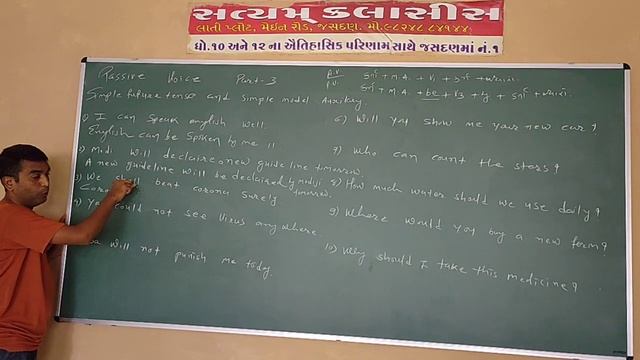 સત્યમ્ ક્લાસીસ
લાતી પ્લોટ, મેઇન રોડ, જસદણ. મો.૯૮૨૪૮ ૮૪૧૪૪
ધો.૧૦ અને ૧૨ ના ઐતિહાસિક પરિણામ સાથે જસદણમાં નં.૧
Passive Voice Part-3
Simple future tense and simple model Auxiliary.
1) I can speak english well.
English can be spoken by me
2) Modi will declaire a new guideline tomorrow.
A new guideline will be declaired by modiji tomorrow.
3) We shall beat corona surely
Coro
4) You could not see virus any where.
will not punish me today.
A.V. + M.A. + V1 +
P.V. + M.A. + be + V3 + by +
6) Will you show me your new car?
7) Who can count the stars?
8) How much water should we use daily?
9) Where would you buy a new farm?
10) Why should I take this medicine?